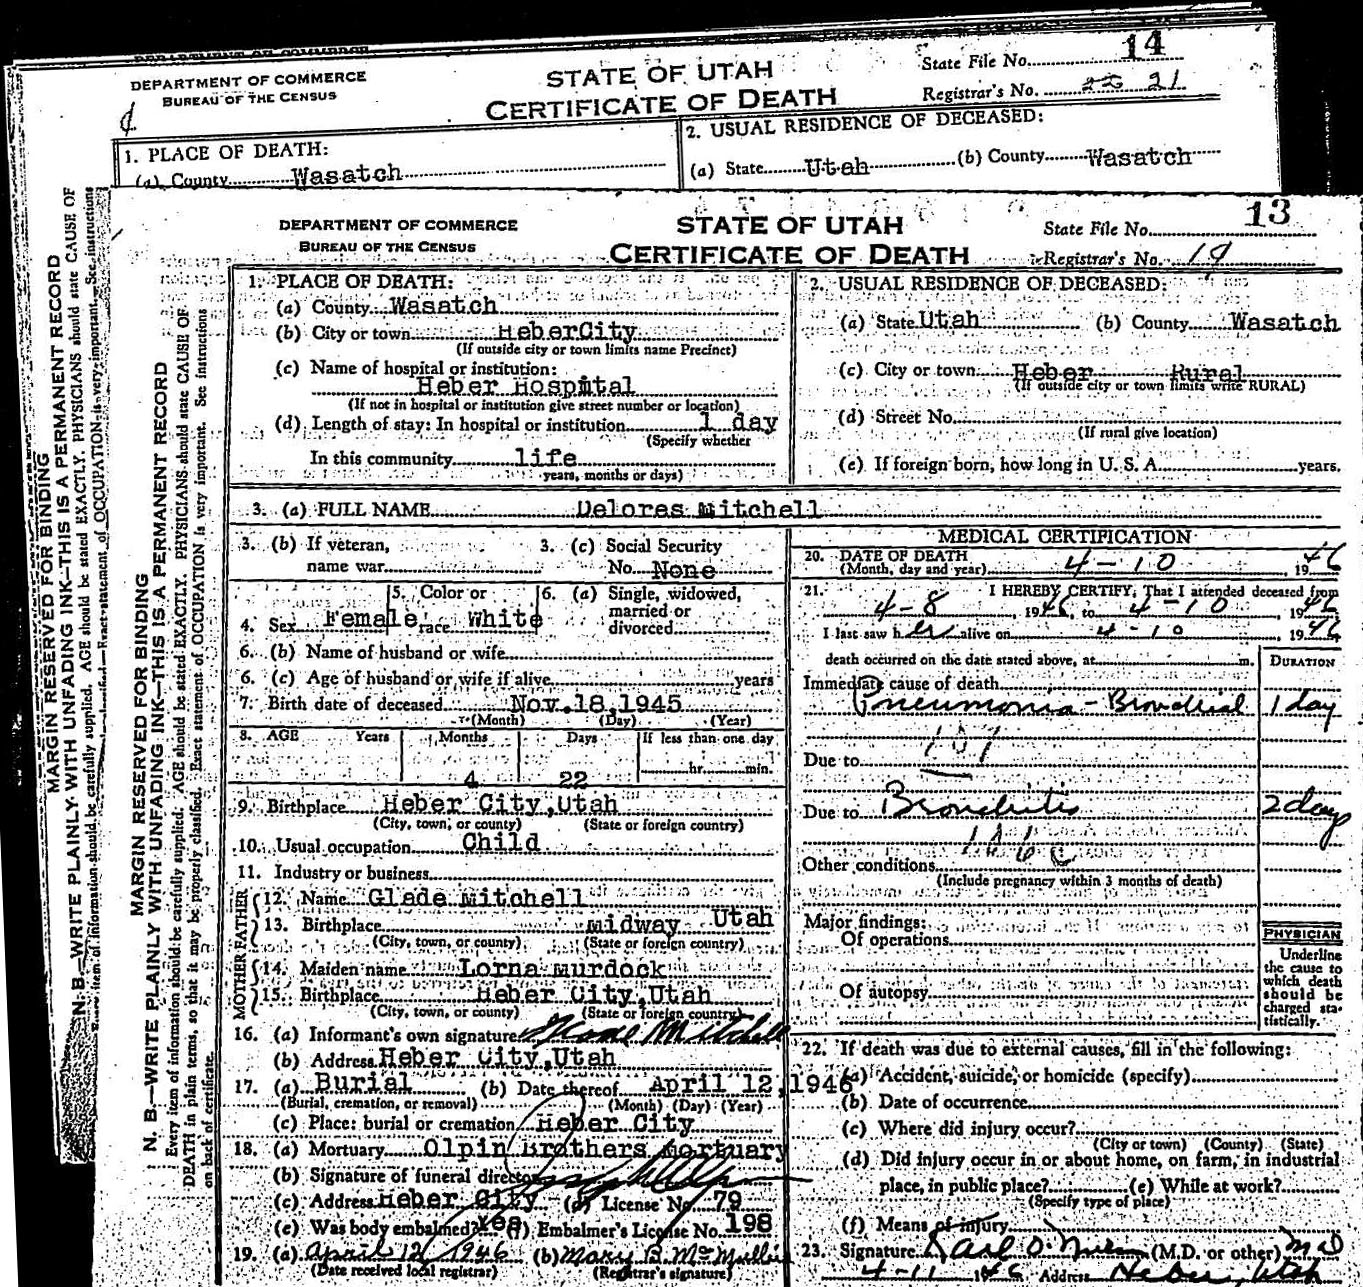 DEPARTMENT OF COMMERCE
BUREAU OF THE CENSUS
STATE OF UTAH
CERTIFICATE OF DEATH
State File No. 14
Registrar's No. 21
1. PLACE OF DEATH:
(a) County Wasatch
2. USUAL RESIDENCE OF DECEASED:
(a) State Utah (b) County Wasatch
MARGIN RESERVED FOR BINDING
N. B.—WRITE PLAINLY WITH UNFADING INK—THIS IS A PERMANENT RECORD
DEPARTMENT OF COMMERCE
BUREAU OF THE CENSUS
STATE OF UTAH
CERTIFICATE OF DEATH
State File No. 13
Registrar's No. 19
MARGIN RESERVED FOR BINDING
N. B.—WRITE PLAINLY WITH UNFADING INK—THIS IS A PERMANENT RECORD
Every item of information should be carefully supplied. AGE should be stated EXACTLY. PHYSICIANS should state CAUSE OF
DEATH in plain terms, so that it may be properly classified. Exact statement of OCCUPATION is very important. See instructions
on back of certificate.
1. PLACE OF DEATH:
(a) County Wasatch
(b) City or town HeberCity
(If outside city or town limits name Precinct)
(c) Name of hospital or institution:
Heber Hospital
(If not in hospital or institution give street number or location)
(d) Length of stay: In hospital or institution 1 day
(Specify whether
In this community life
years, months or days)
2. USUAL RESIDENCE OF DECEASED:
(a) State Utah (b) County Wasatch
(c) City or town Heber Rural
(If outside city or town limits write RURAL)
(d) Street No.
(If rural give location)
(e) If foreign born, how long in U. S. A. years.
3. (a) FULL NAME Delores Mitchell
3. (b) If veteran,
name war
3. (c) Social Security
No. None
4. Sex Female
5. Color or
race White
6. (a) Single, widowed,
married or
divorced
6. (b) Name of husband or wife
6. (c) Age of husband or wife if alive years
7. Birth date of deceased Nov.18,1945
(Month) (Day) (Year)
8. AGE Years Months Days If less than one day
4 22 hr. min.
9. Birthplace Heber City,Utah
(City, town, or county) (State or foreign country)
10. Usual occupation Child
11. Industry or business
FATHER
12. Name Glade Mitchell
13. Birthplace Midway Utah
(City, town, or county) (State or foreign country)
MOTHER
14. Maiden name Lorna Murdock
15. Birthplace Heber City,Utah
(City, town, or county) (State or foreign country)
16. (a) Informant's own signature Glade Mitchell
(b) Address Heber City,Utah
17. (a) Burial (b) Date thereof April 12,1946
(Burial, cremation, or removal) (Month) (Day) (Year)
(c) Place: burial or cremation Heber City
18. (a) Mortuary Olpin Brothers Mortuary
(b) Signature of funeral director
(c) Address Heber City (d) License No. 79
(e) Was body embalmed? Yes (f) Embalmer's License No. 198
19. (a) April 12 1946 (b) Mary B. McMullin
(Date received local registrar) (Registrar's signature)
MEDICAL CERTIFICATION
20. DATE OF DEATH
(Month, day and year) 4-10 1946
21. I HEREBY CERTIFY, That I attended deceased from
4-8, 1946, to 4-10, 1946
I last saw her alive on 4-10, 1946
death occurred on the date stated above, at m. DURATION
Immediate cause of death
Pneumonia - Bronchial 1 day
107
Due to
Due to Bronchitis 2 days
106 c
Other conditions
(Include pregnancy within 3 months of death)
Major findings:
Of operations
Of autopsy
PHYSICIAN
Underline
the cause to
which death
should be
charged sta-
tistically.
22. If death was due to external causes, fill in the following:
(a) Accident, suicide, or homicide (specify)
(b) Date of occurrence
(c) Where did injury occur?
(City or town) (County) (State)
(d) Did injury occur in or about home, on farm, in industrial
place, in public place? (e) While at work?
(Specify type of place)
(f) Means of injury
23. Signature Karl O. Nielson (M.D. or other) M D
4-11 1946 Address Heber, Utah